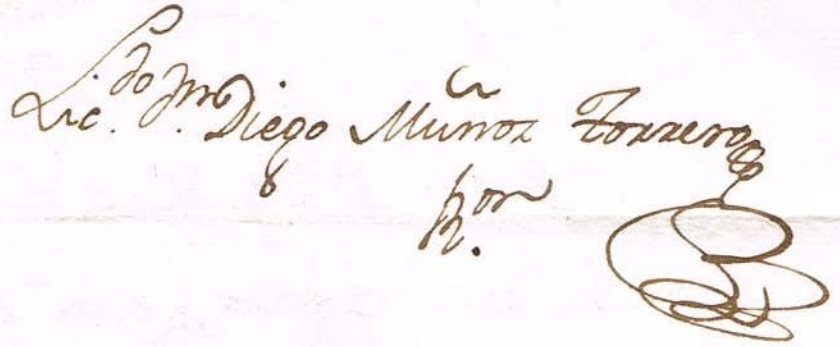 Lic.do Dn. Diego Muñoz Torrero
R.or